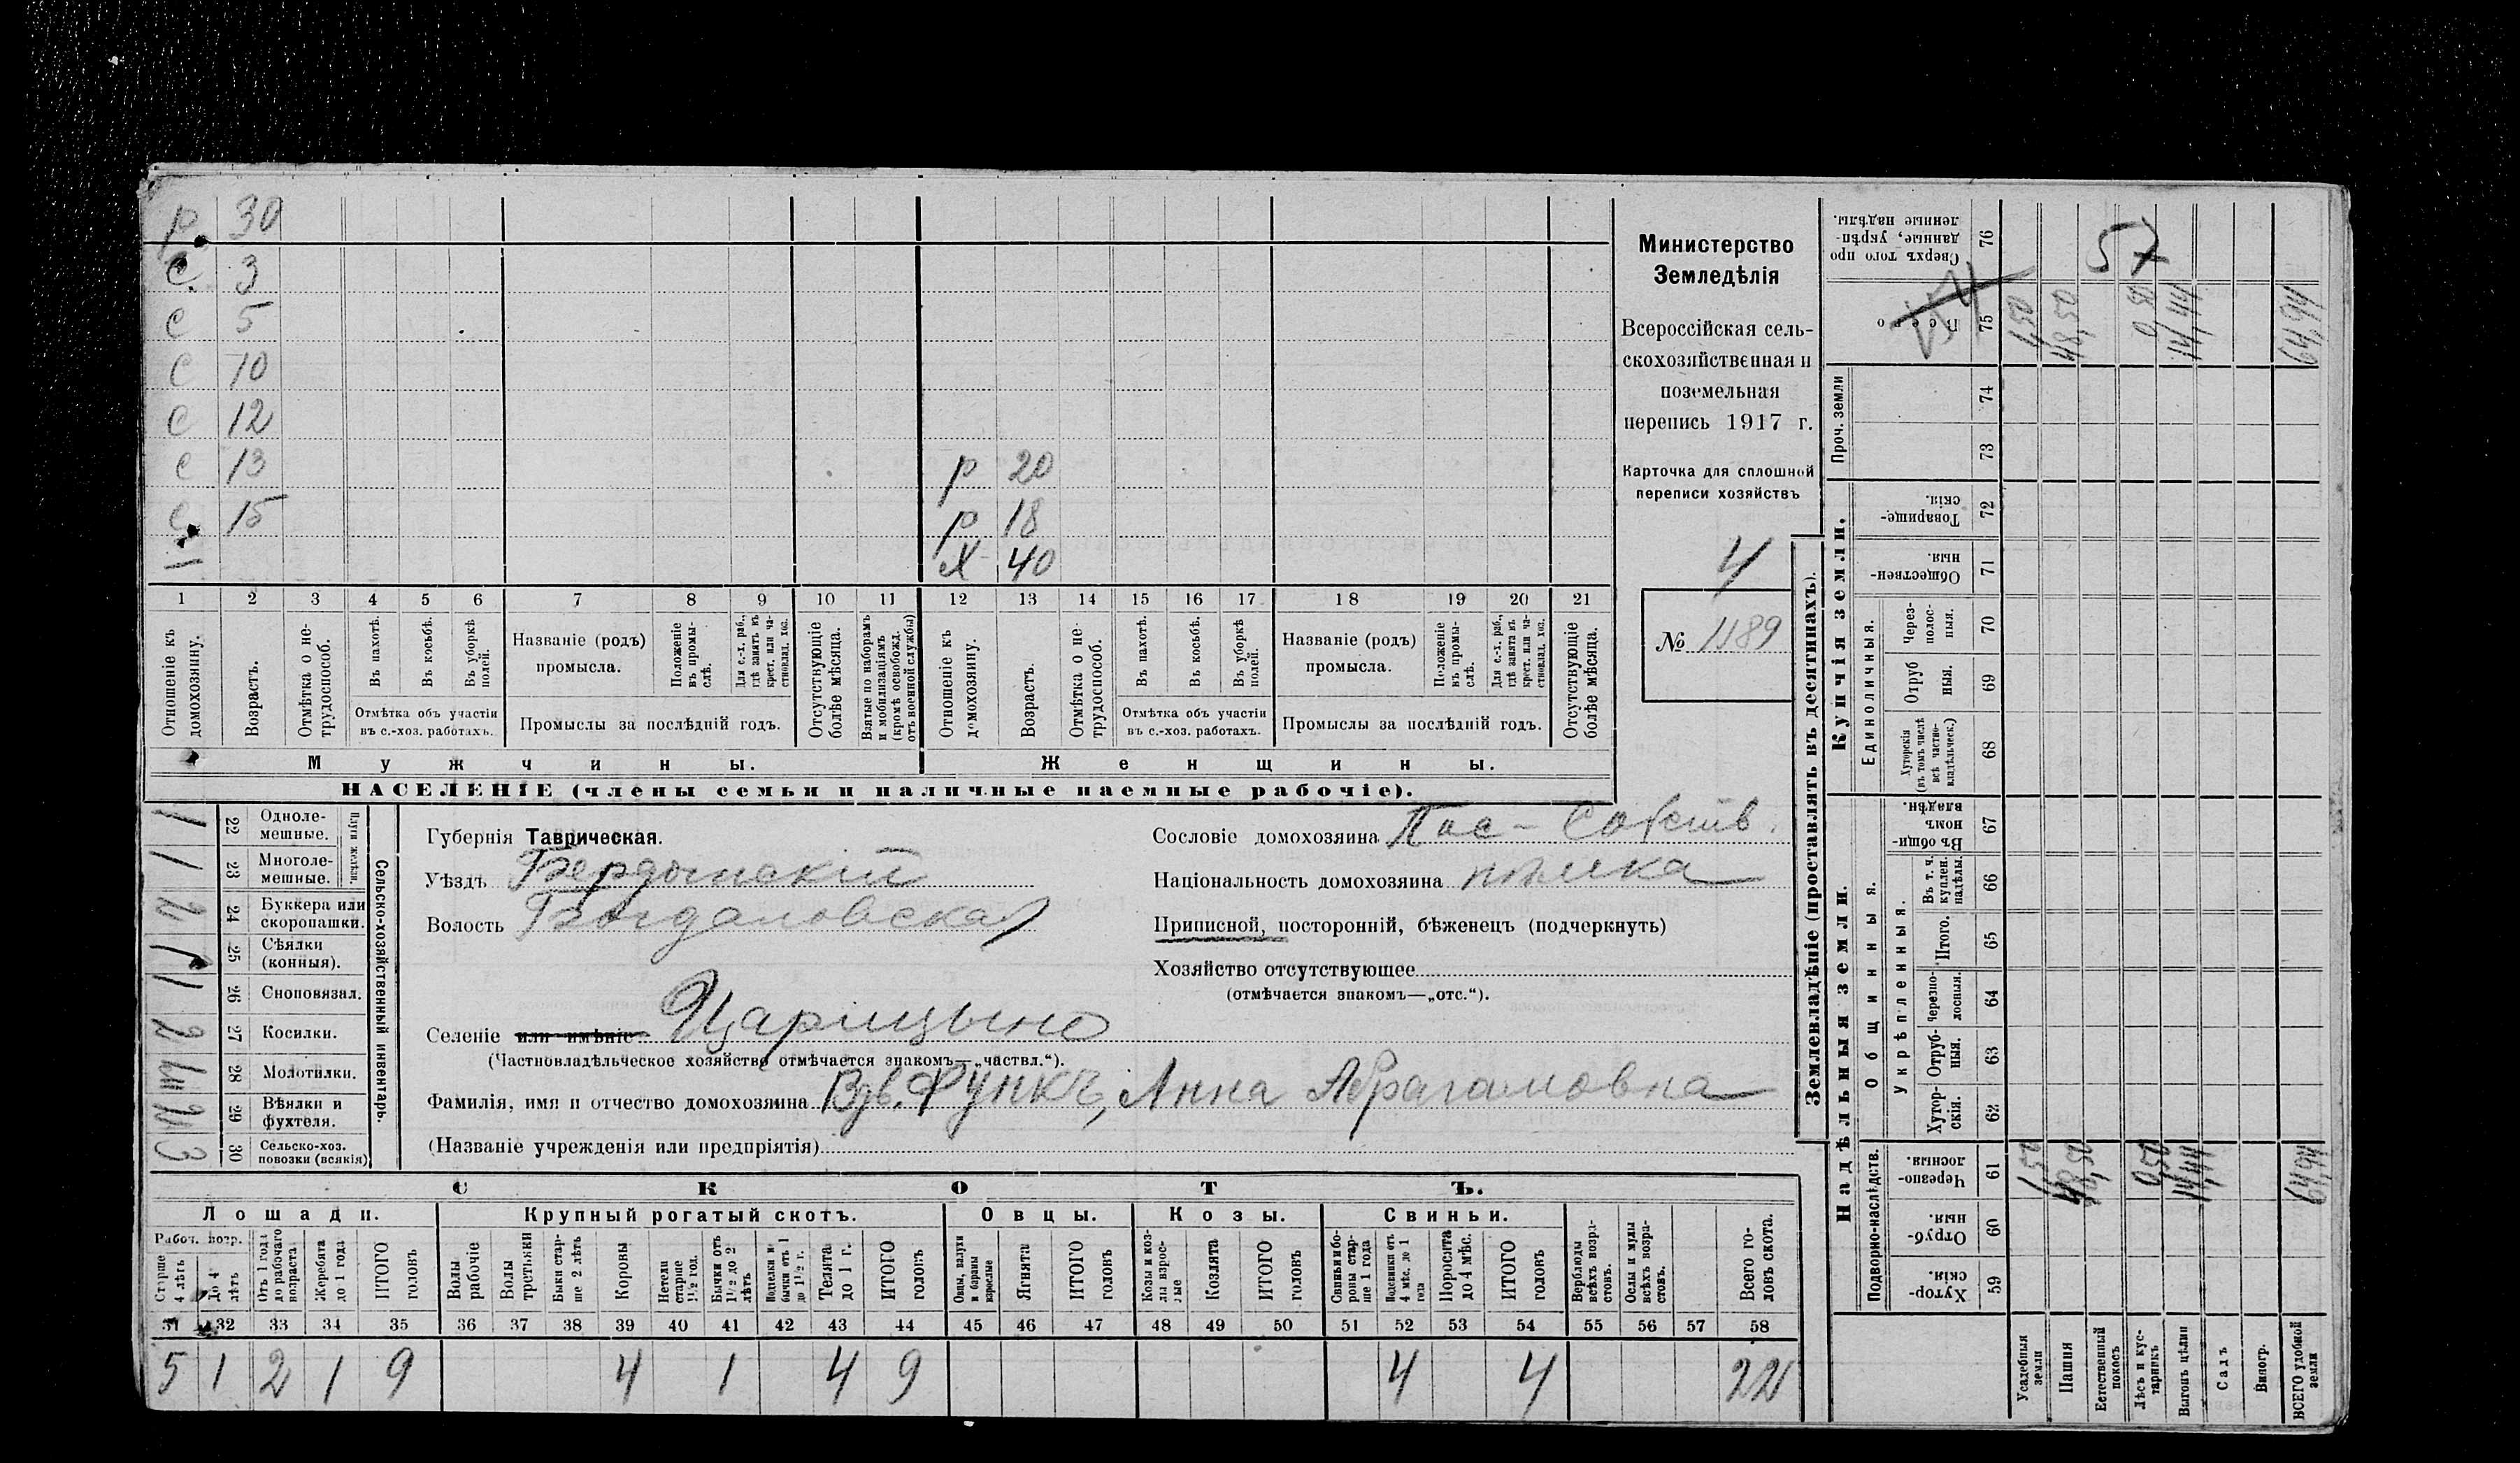 р. 30
с. 3
с 5
с 10
с 12
с 13
с 15
р 20
р 18
Х 40
1 2 3 4 5 6 7 8 9 10 11 12 13 14 15 16 17 18 19 20 21
Отношеніе къ домохозяину.
Возрастъ.
Отмѣтка о не-трудоспособ.
Въ пахотѣ.
Въ косьбѣ.
Въ уборкѣ полей.
Отмѣтка объ участіи въ с.-хоз. работахъ.
Названіе (родъ) промысла.
Положеніе въ промы-слѣ.
Для с.-х. раб., гдѣ занятъ въ крест. или ча-стновлад. хоз.
Промыслы за послѣдній годъ.
Отсутствующіе болѣе мѣсяца.
Взятые по наборамъ и мобилизаціямъ (кромѣ освобожд. отъ военной службы)
Отношеніе къ домохозяину.
Возрастъ.
Отмѣтка о не-трудоспособ.
Въ пахотѣ.
Въ косьбѣ.
Въ уборкѣ полей.
Отмѣтка объ участіи въ с.-хоз. работахъ.
Названіе (родъ) промысла.
Положеніе въ промы-слѣ.
Для с.-х. раб., гдѣ занята въ крест. или ча-стновлад. хоз.
Промыслы за послѣдній годъ.
Отсутствующіе болѣе мѣсяца.
Мужчины.
Женщины.
НАСЕЛЕНІЕ (члены семьи и наличные наемные рабочіе).
Министерство
Земледѣлія
Всероссійская сель-
скохозяйственная и
поземельная
перепись 1917 г.
Карточка для сплошной
переписи хозяйствъ
4
№ 1189
Плуги желѣзн.
22 Одноле-мешные. 1
23 Многоле-мешные. 1
24 Буккера или скоропашки. 2
25 Сѣялки (конныя). 1
26 Сноповязал. 1
27 Косилки. 2
28 Молотилки.
29 Вѣялки и фухтеля.
30 Сельско-хоз. повозки (всякія) 3
Сельско-хозяйственный инвентарь.
Губернія Таврическая.
Уѣздъ Бердянскій
Волость Богдановская
Селеніе или имѣніе Царицыно
(Частновладѣльческое хозяйство отмѣчается знакомъ—„частвл.“).
Фамилія, имя и отчество домохозяина Вдв. Функъ, Анна Абрагамовна
(Названіе учрежденія или предпріятія)
Сословіе домохозяина Пос-Собств.
Національность домохозяина нѣмка
Приписной, посторонній, бѣженецъ (подчеркнуть)
Хозяйство отсутствующее
(отмѣчается знакомъ—„отс.“).
СКОТЪ.
Лошади. Крупный рогатый скотъ. Овцы. Козы. Свиньи.
Рабоч. возр.
Старше 4 лѣтъ
до 4 лѣтъ
Отъ 1 года до рабочаго возраста
Жеребята до 1 года
ИТОГО головъ
Волы рабочіе
Волы третьяки
Быки стар-ше 2 лѣтъ
Коровы
Нетели старше 1½ год.
Бычки отъ 1½ до 2 лѣтъ
Телята до 1 г.
ИТОГО головъ
Овцы, валухи и бараны взрослые
Ягнята
ИТОГО головъ
Козы и коз-лы взрос-лые
Козлята
ИТОГО головъ
Свиньи и бо-ровы стар-ше 1 года
Подсвинки отъ 4 мѣс. до 1 года
Поросята до 4 мѣс.
ИТОГО головъ
Верблюды всѣхъ возра-стовъ.
Ослы и мулы всѣхъ возра-стовъ.
Всего го-ловъ скота.
31 32 33 34 35 36 37 38 39 40 41 42 43 44 45 46 47 48 49 50 51 52 53 54 55 56 57 58
5 1 2 1 9 4 1 4 9 4 4 22
Землевладѣніе (проставлять въ десятинахъ).
Надѣльныя земли.
Купчія земли.
Проч. земли
Сверхъ того про-данные, укрѣп-ленные надѣлы. 76
Всего 75
57
74
73
Товарище-скія. 72
Обществен-ныя. 71
Единоличныя.
Через-полос-ныя. 70
Отруб-ныя. 69
Хуторскія (въ томъ числѣ всѣ частно-владѣльческ.) 68
Въ общи-номъ владѣн. 67
Общинныя.
Укрѣпленныя.
Въ т. ч. куплен. надѣлы. 66
Итого. 65
Черезпо-лосныя. 64
Отруб-ныя. 63
Хутор-скія. 62
Подворно-наслѣдств.
Черезпо-лосныя. 61
Отруб-ныя. 60
Хутор-скія. 59
Усадебныя земли 1,50 1,50
Пашня 48,50
Естественный покосъ
Лѣсъ и кус-тарникъ 0,50
Выгонъ цѣлин 14,44 14,44
Садъ
Виногр.
ВСЕГО удобной земли 64,94 64,94